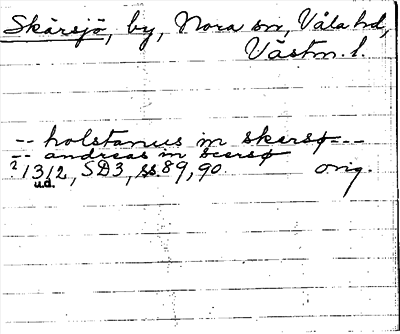 Skärsjö, by, Nora sn, Våla hd,
Västm. l.
-- holstanus in skersø---
-- andreas in beersø
? 1312, SD3, ss. 89, 90. orig.
u.d.